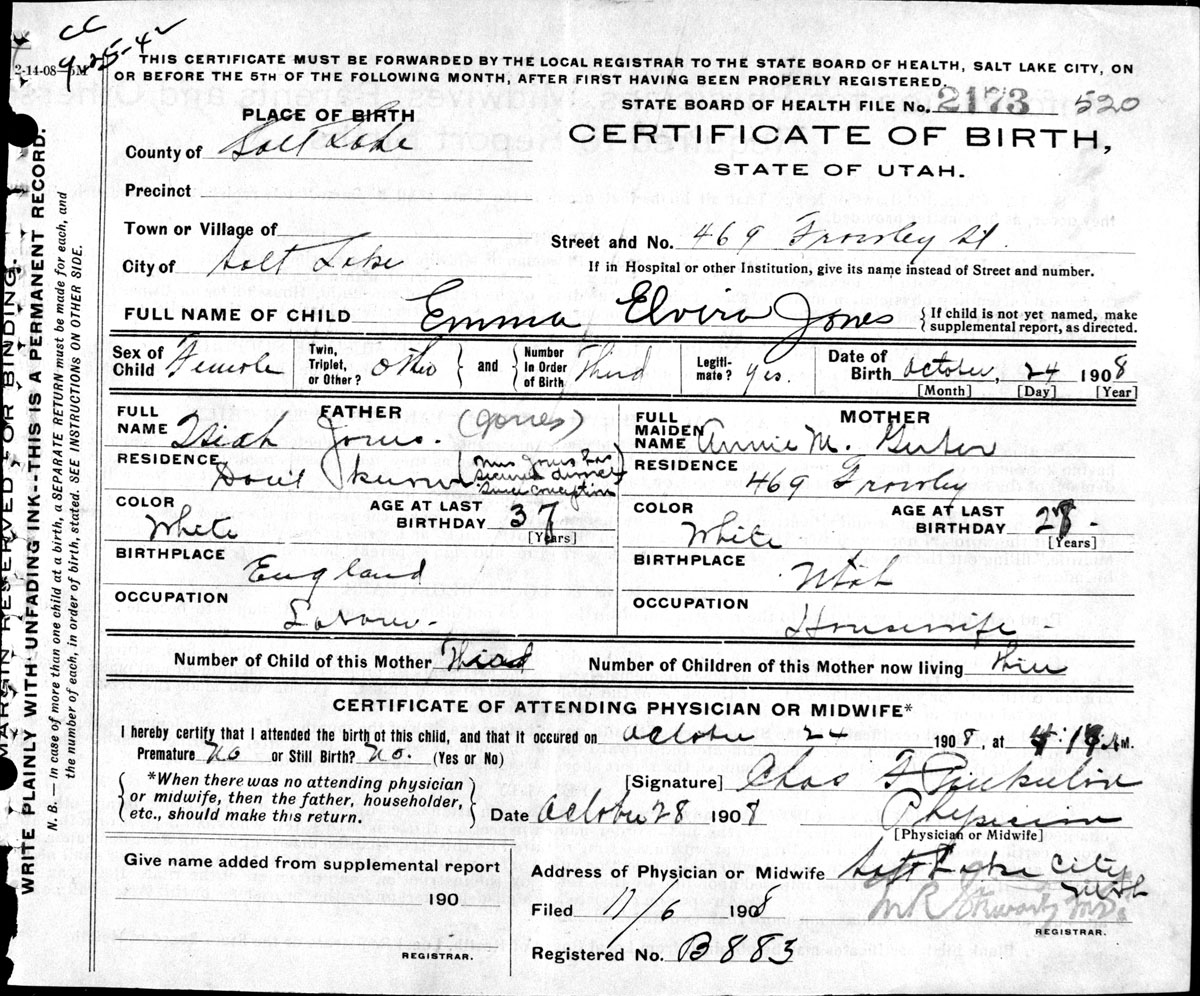 CC
9-25-42
2-14-08-5M
THIS CERTIFICATE MUST BE FORWARDED BY THE LOCAL REGISTRAR TO THE STATE BOARD OF HEALTH, SALT LAKE CITY, ON
OR BEFORE THE 5TH OF THE FOLLOWING MONTH, AFTER FIRST HAVING BEEN PROPERLY REGISTERED.
STATE BOARD OF HEALTH FILE No. 2173 520
PLACE OF BIRTH
CERTIFICATE OF BIRTH,
STATE OF UTAH.
County of Salt Lake
Precinct
Town or Village of
Street and No. 469 St.
City of Salt Lake
If in Hospital or other Institution, give its name instead of Street and number.
FULL NAME OF CHILD Emma Elvira Jones
{ If child is not yet named, make
supplemental report, as directed.
Sex of Child Female
Twin, Triplet, or Other? other } and { Number In Order of Birth Third
Legiti-mate? yes.
Date of Birth October, 24 1908
[Month] [Day] [Year]
FATHER
FULL NAME Isiah Jones. (Jones)
RESIDENCE Dont know (Mrs Jones has
secured divorce
since conception)
COLOR White
AGE AT LAST BIRTHDAY 37
[Years]
BIRTHPLACE England
OCCUPATION Laborer.
MOTHER
FULL MAIDEN NAME Annie M.
RESIDENCE 469
COLOR White
AGE AT LAST BIRTHDAY 28-
[Years]
BIRTHPLACE Utah
OCCUPATION Housewife-
Number of Child of this Mother Third
Number of Children of this Mother now living
CERTIFICATE OF ATTENDING PHYSICIAN OR MIDWIFE*
I hereby certify that I attended the birth of this child, and that it occured on October 24 1908, at 4:19 A.M.
Premature No or Still Birth? No. (Yes or No)
{ *When there was no attending physician
or midwife, then the father, householder,
etc., should make this return. }
[Signature] Chas
Date October 28 1908
Physician
[Physician or Midwife]
Give name added from supplemental report
190
REGISTRAR.
Address of Physician or Midwife Salt Lake City
Utah
Filed 11/6 1908
M.D.
REGISTRAR.
Registered No. B883
MARGIN RESERVED FOR BINDING.
WRITE PLAINLY WITH UNFADING INK--THIS IS A PERMANENT RECORD.
N. B. — In case of more than one child at a birth, a SEPARATE RETURN must be made for each, and
the number of each, in order of birth, stated. SEE INSTRUCTIONS ON OTHER SIDE.